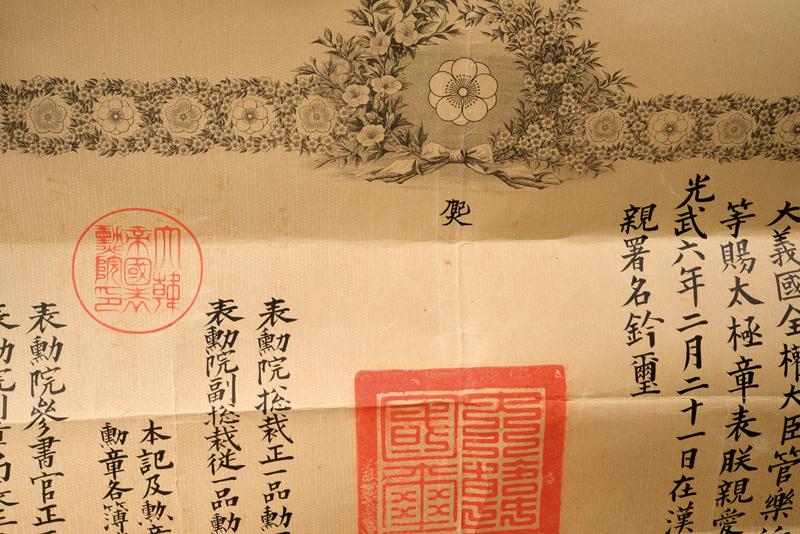 大義國全權大臣管樂
等賜太極章表朕親愛
光武六年二月二十一日在漢
親署名鈐璽
表勳院総裁正一品勳
表勳院副総裁従一品勳
本記及勳章
勳章各簿
大韓
帝國表
勳院印
表勳院參書官正
表勳院